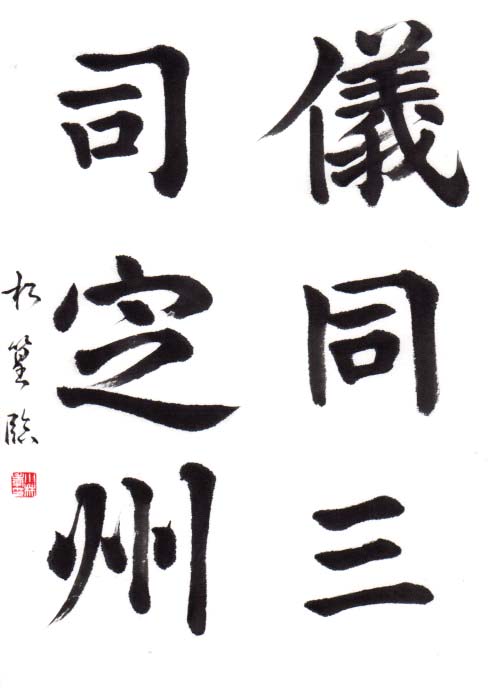 儀同三
司定州
松篁臨